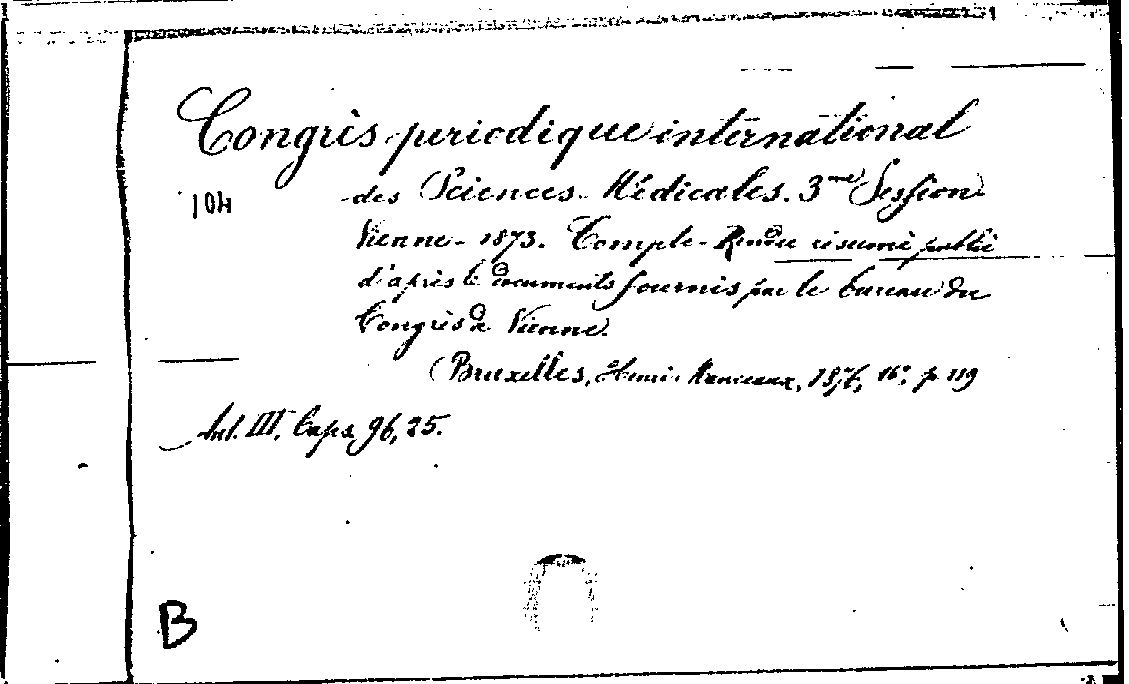 Congrès periodique international
104
des Sciences Médicales. 3me Session
Vienne - 1873. Compte-Rendu résumé publié
d'après le documents fournis par le bureau du
Congrès de Vienne.
(Bruxelles, Henri Manceaux, 1876, 16º, p 119
Ant. III. Caps. 96, 25.
B